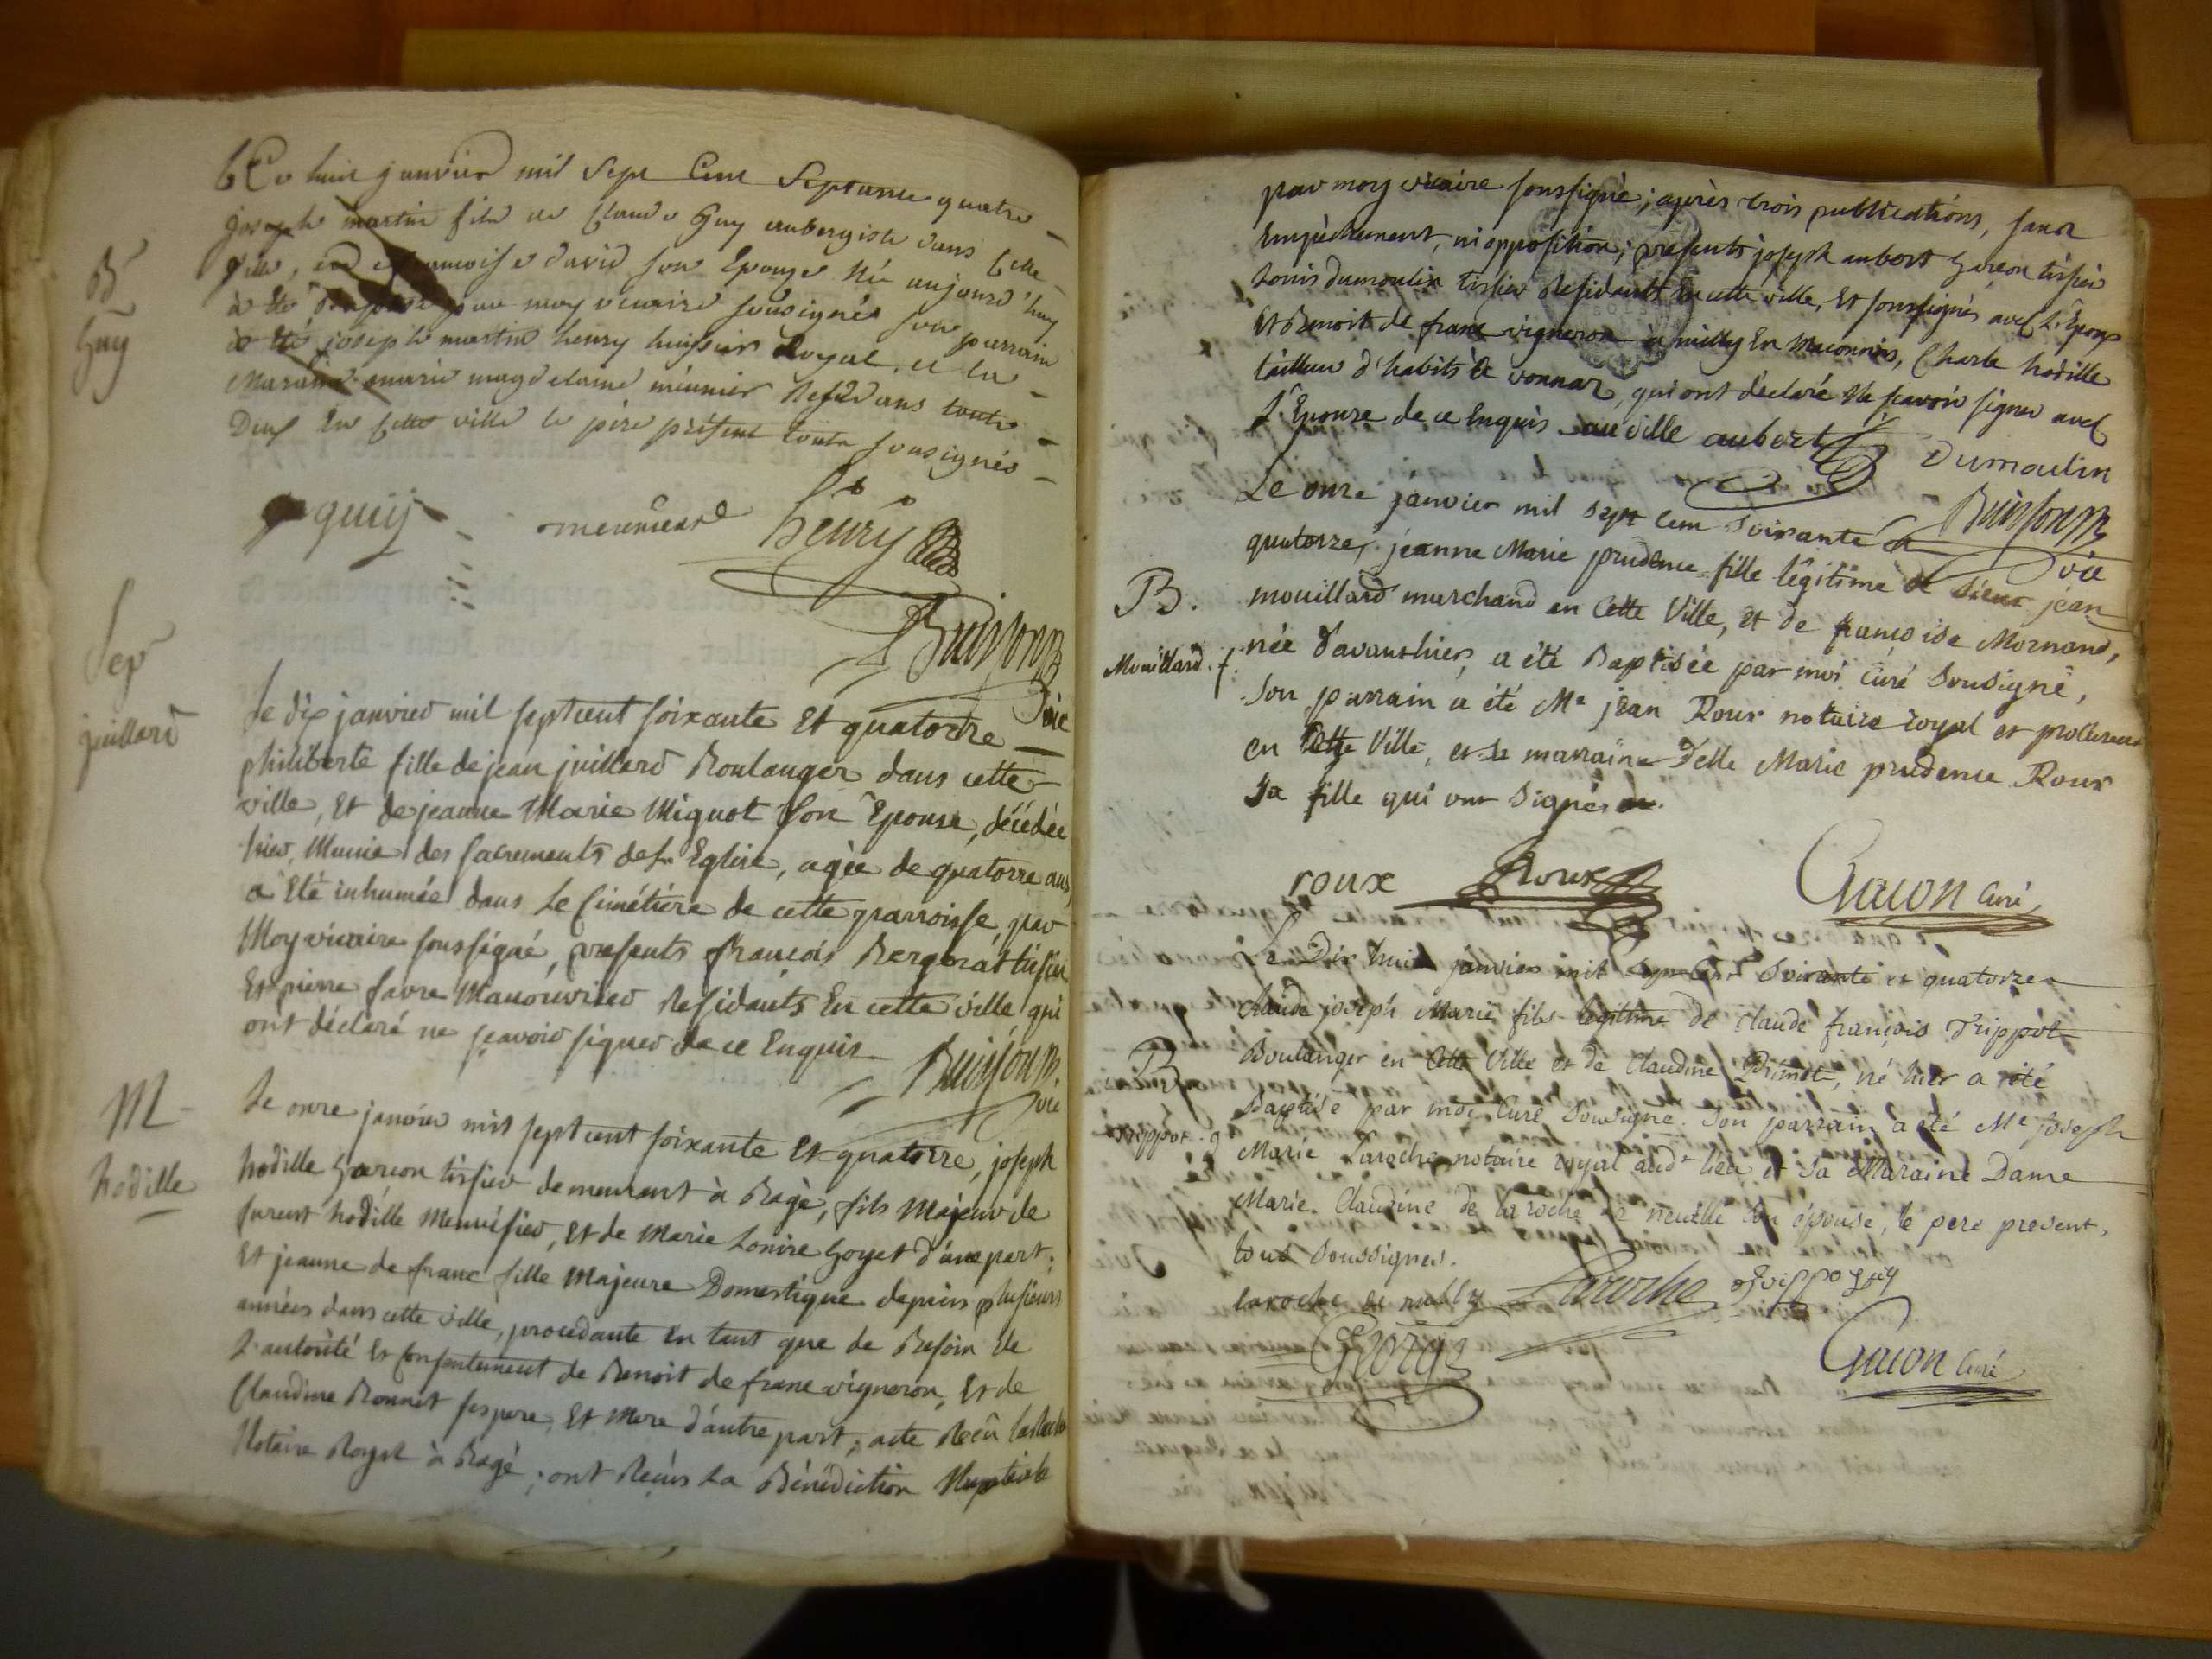 Le huit janvier mil sept cent septante quatre
joseph martin fils de Claude Guy aubergiste dans cette
ville, et de françoise david son Epouze né aujourd'huy
a été baptisé par moy vicaire sousignés son parrain
a été joseph martin henry huissier Royal, et la
Maraine marie magdelaine meunier Residans touts
Deux En cette ville le père présent touts sousignés
B
Guy
guy meuniere henry
Buisson
vic
Sep
juillard
Le dix janvier mil sept cent soixante Et quatorze
philiberte fille de jean juillard Boulanger dans cette
ville, Et de jeanne Marie Miguot son Epouse, décédée
hier, Munie des sacrements de L'Eglise, agée de quatorze ans,
a Eté inhumée dans Le Cimétière de cette parroisse, par
Moy vicaire soussigné, presents françois Bergerat tissier
Et pierre favre Manouvrier Residants En cette ville qui
ont déclaré ne sçavoir signer de ce Enquis
Buisson
vic
M
hodille
Le onze janvier mil sept cent soixante Et quatorze, joseph
hodille Garcon tissier demeurant à Bagé, fils Majeur de
furent hodille Menuisier, Et de Marie Louise Goyet d'une part;
Et jeanne de franc fille Majeure Domestique depuis plusieurs
années dans cette ville, procedante En tant que de Besoin De
L'autorité Et Consentement de Benoit de franc vigneron, Et de
Claudine Bonnet ses pere Et Mere d'autre part; acte Reçû
Notaire Royal à Bagé; ont Reçus La Bénédiction Nuptiale
par moy vicaire soussigné; après trois publications, sans
Empêchement, ni opposition; presents joseph aubert Garcon tissier
Louis dumoulin tissier Residants En cette ville, Et soussignés avec L'Epoux
Et Benoit de franc vigneron à milly En Maconnois, Charle hodille
tailleur d'habits à vonnas, qui ont déclaré Ne sçavoir signer avec
L'Epouze de ce Enquis auville aubert Dumoulin
Buisson
vic
Le onze janvier mil sept cent soixante et
quatorze, jeanne Marie prudence fille légitime de sieur jean
B.
mouillard marchand en Cette Ville, et de françoise Mornand,
Mouillard. f.
née d'avanthier, a été Baptisée par moi curé Sousigné,
Son parrain a été Me jean Roux notaire royal et procureur
en Cette Ville, et sa marraine Delle Marie prudence Roux
Sa fille qui ont Signés
roux Roux Gacon Curé
Le Dix huit janvier mil sept cent soixante et quatorze
claude joseph Marie fils légitime de claude françois Trippot
B
Boulanger en Cette Ville et de Claudine, né hier a été
Baptisé par moi Curé Sousigné. Son parrain a été Me joseph
Trippot. g
Marie Laroche notaire royal aud. lieu et Sa Maraine Dame
Marie Claudine de la roche de neuilly son épouse, le pere present,
tous Soussignes.
laroche de nully Laroche
George
Gacon Curé